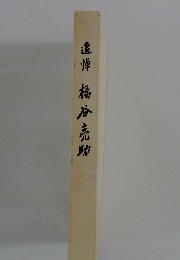 追悼 橋谷亮助